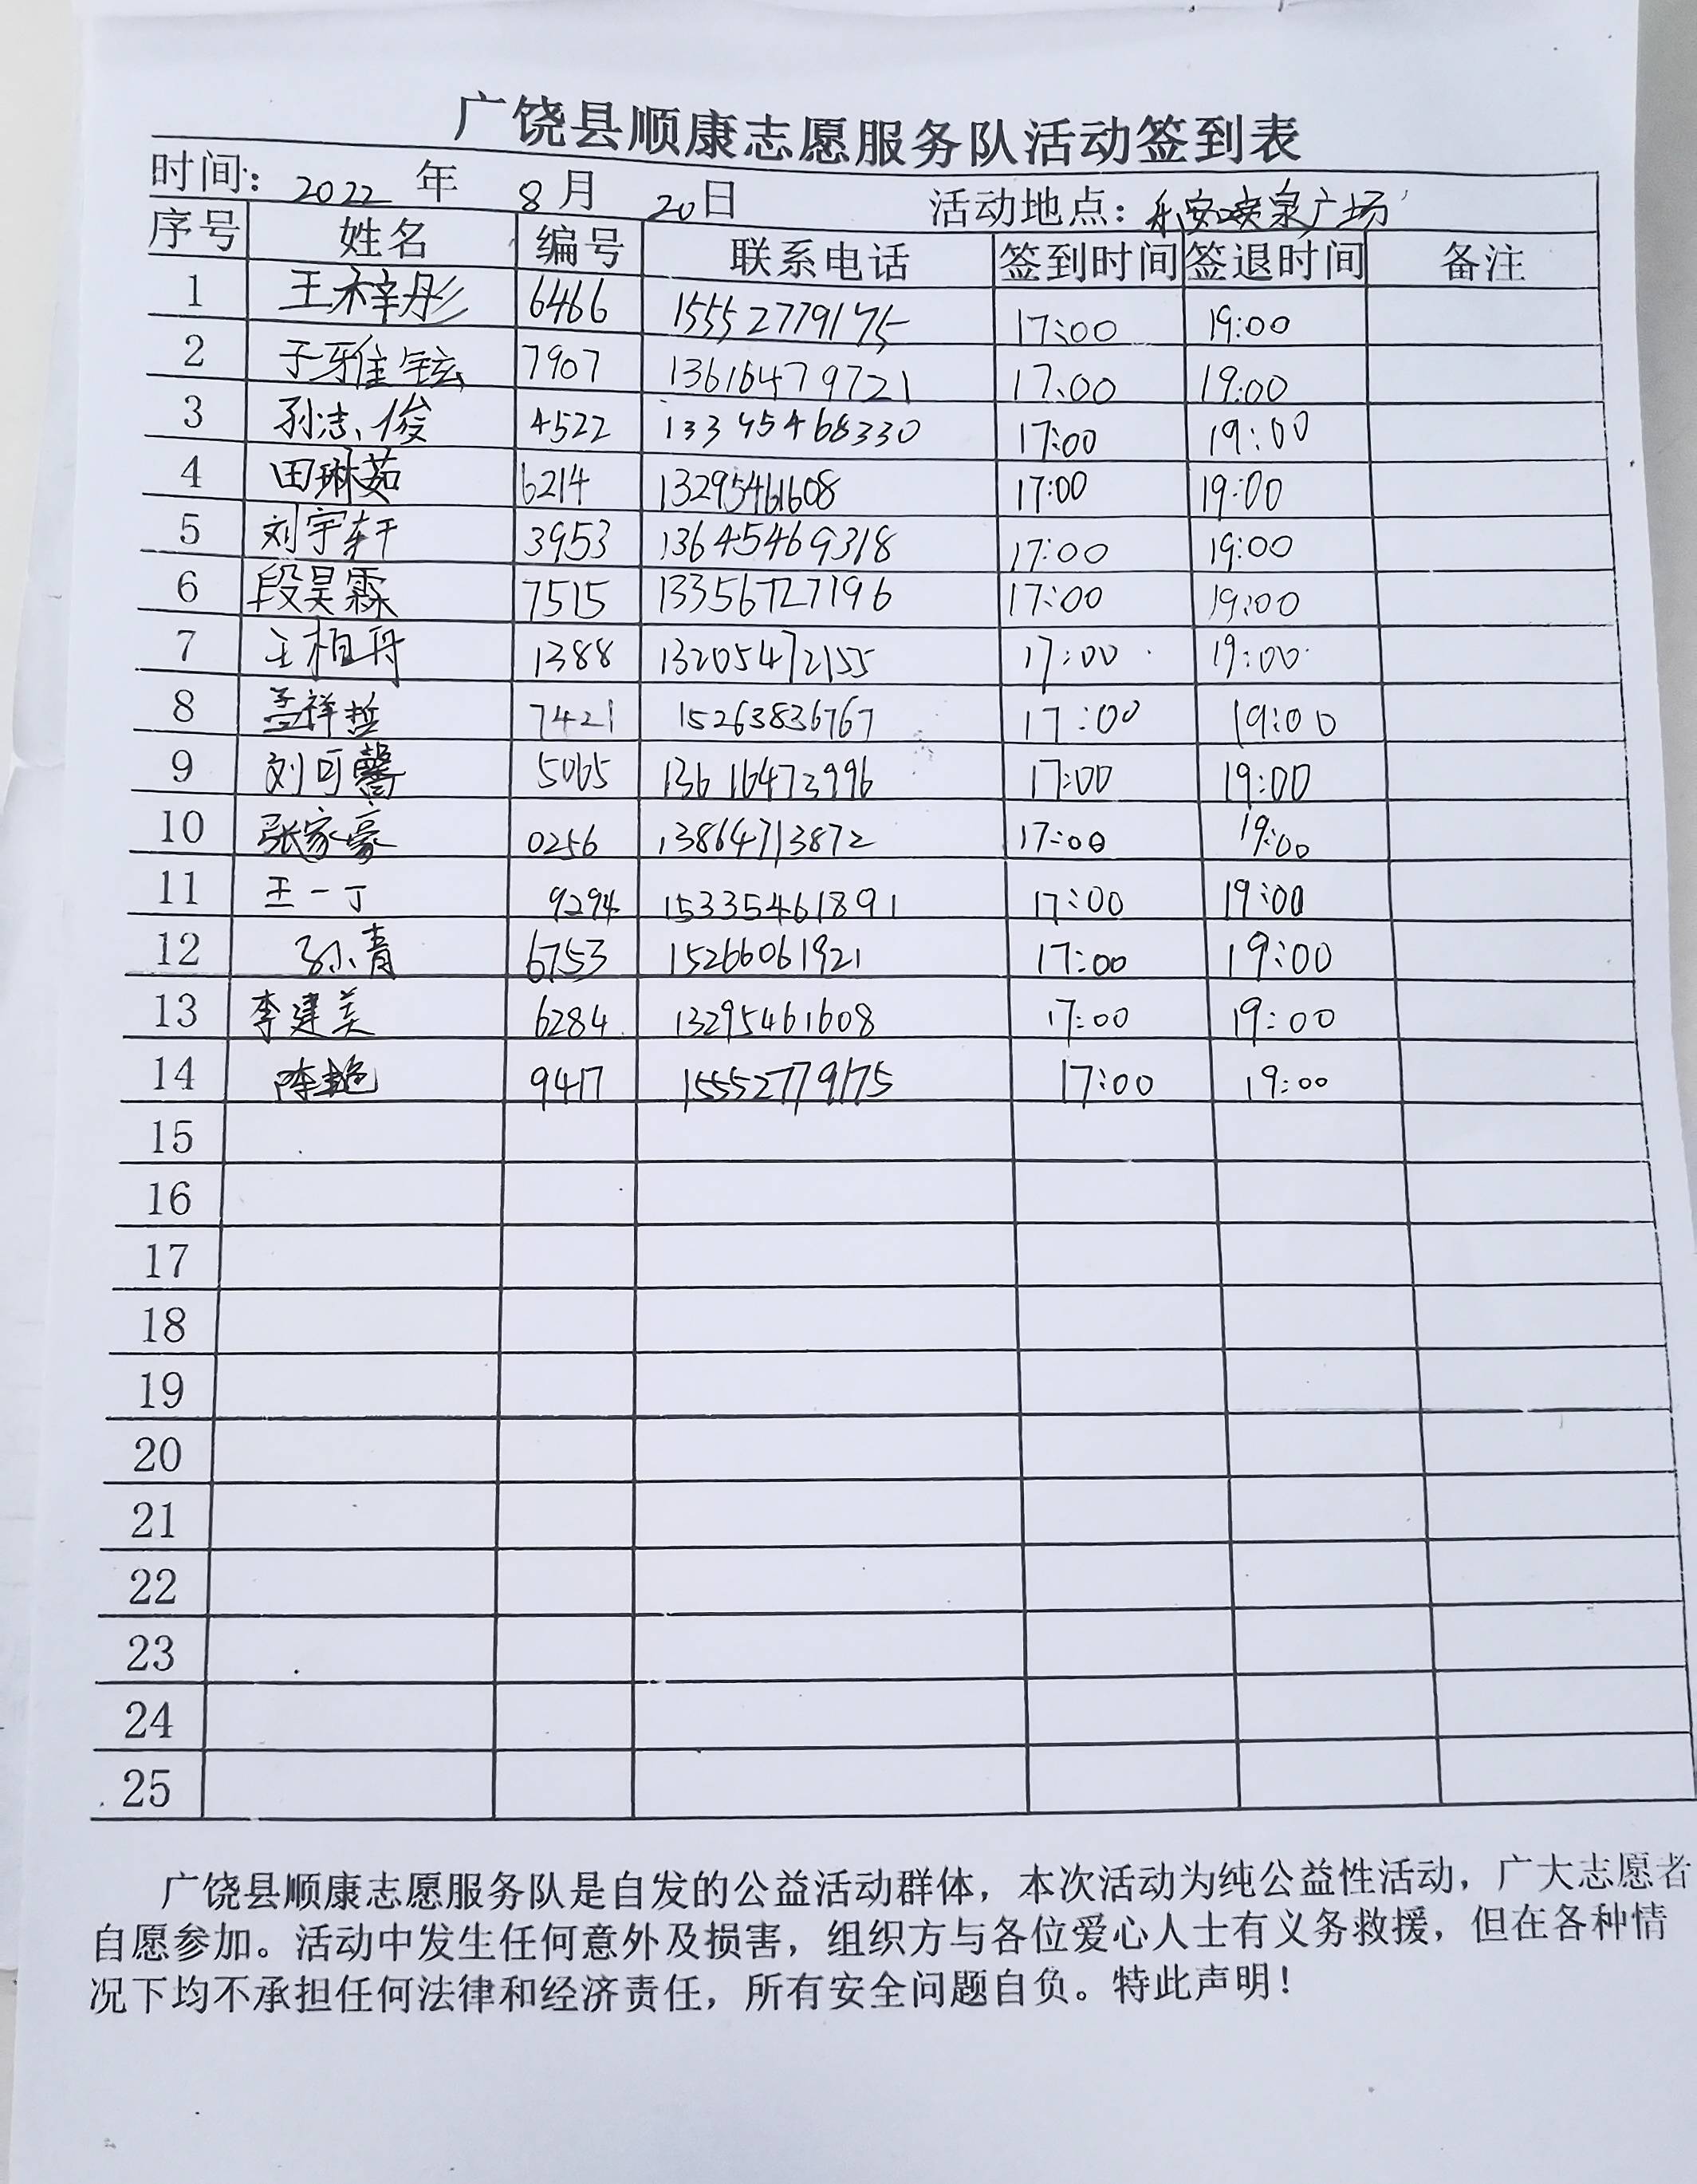 广饶县顺康志愿服务队活动签到表
时间: 2022 年 8 月 20 日 活动地点: 乐安喷泉广场
序号 姓名 编号 联系电话 签到时间 签退时间 备注
1 王梓彤 6466 15552779175 17:00 19:00
2 于雅铉 7907 13616479721 17:00 19:00
3 孙志俊 4522 13345468330 17:00 19:00
4 田琳茹 6214 13295461608 17:00 19:00
5 刘宇轩 3953 13645469318 17:00 19:00
6 段昊霖 7515 13356727196 17:00 19:00
7 王柏丹 1388 13205472155 17:00 19:00
8 孟祥哲 7421 15263836767 17:00 19:00
9 刘可馨 5065 13616473996 17:00 19:00
10 张家豪 0256 13864713872 17:00 19:00
11 王一丁 9294 15335461891 17:00 19:00
12 孙青 6753 15266061921 17:00 19:00
13 李建美 6284 13295461608 17:00 19:00
14 陈艳 9417 15552779175 17:00 19:00
15
16
17
18
19
20
21
22
23
24
25
广饶县顺康志愿服务队是自发的公益活动群体，本次活动为纯公益性活动，广大志愿者
自愿参加。活动中发生任何意外及损害，组织方与各位爱心人士有义务救援，但在各种情
况下均不承担任何法律和经济责任，所有安全问题自负。特此声明！